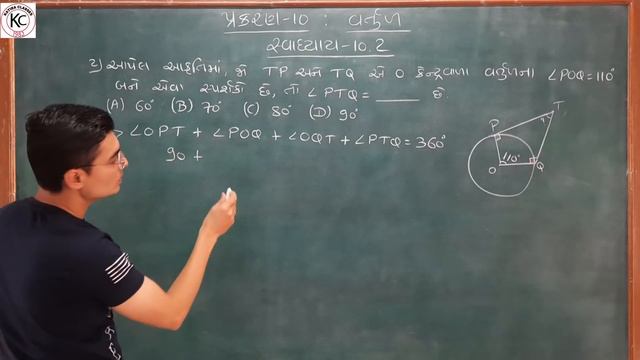 KATIRA CLASSES
KC
પ્રકરણ-10 : વર્તુળ
સ્વાધ્યાય-10.2
2) આપેલ આકૃતિમાં, જો TP અને TQ એ O કેન્દ્રવાળા વર્તુળના ∠POQ=110°
બને એવા સ્પર્શકો છે, તો ∠PTQ = _____ છે.
(A) 60° (B) 70° (C) 80° (D) 90°
> ∠OPT + ∠POQ + ∠OQT + ∠PTQ = 360°
90 +
T
P
110°
O
Q